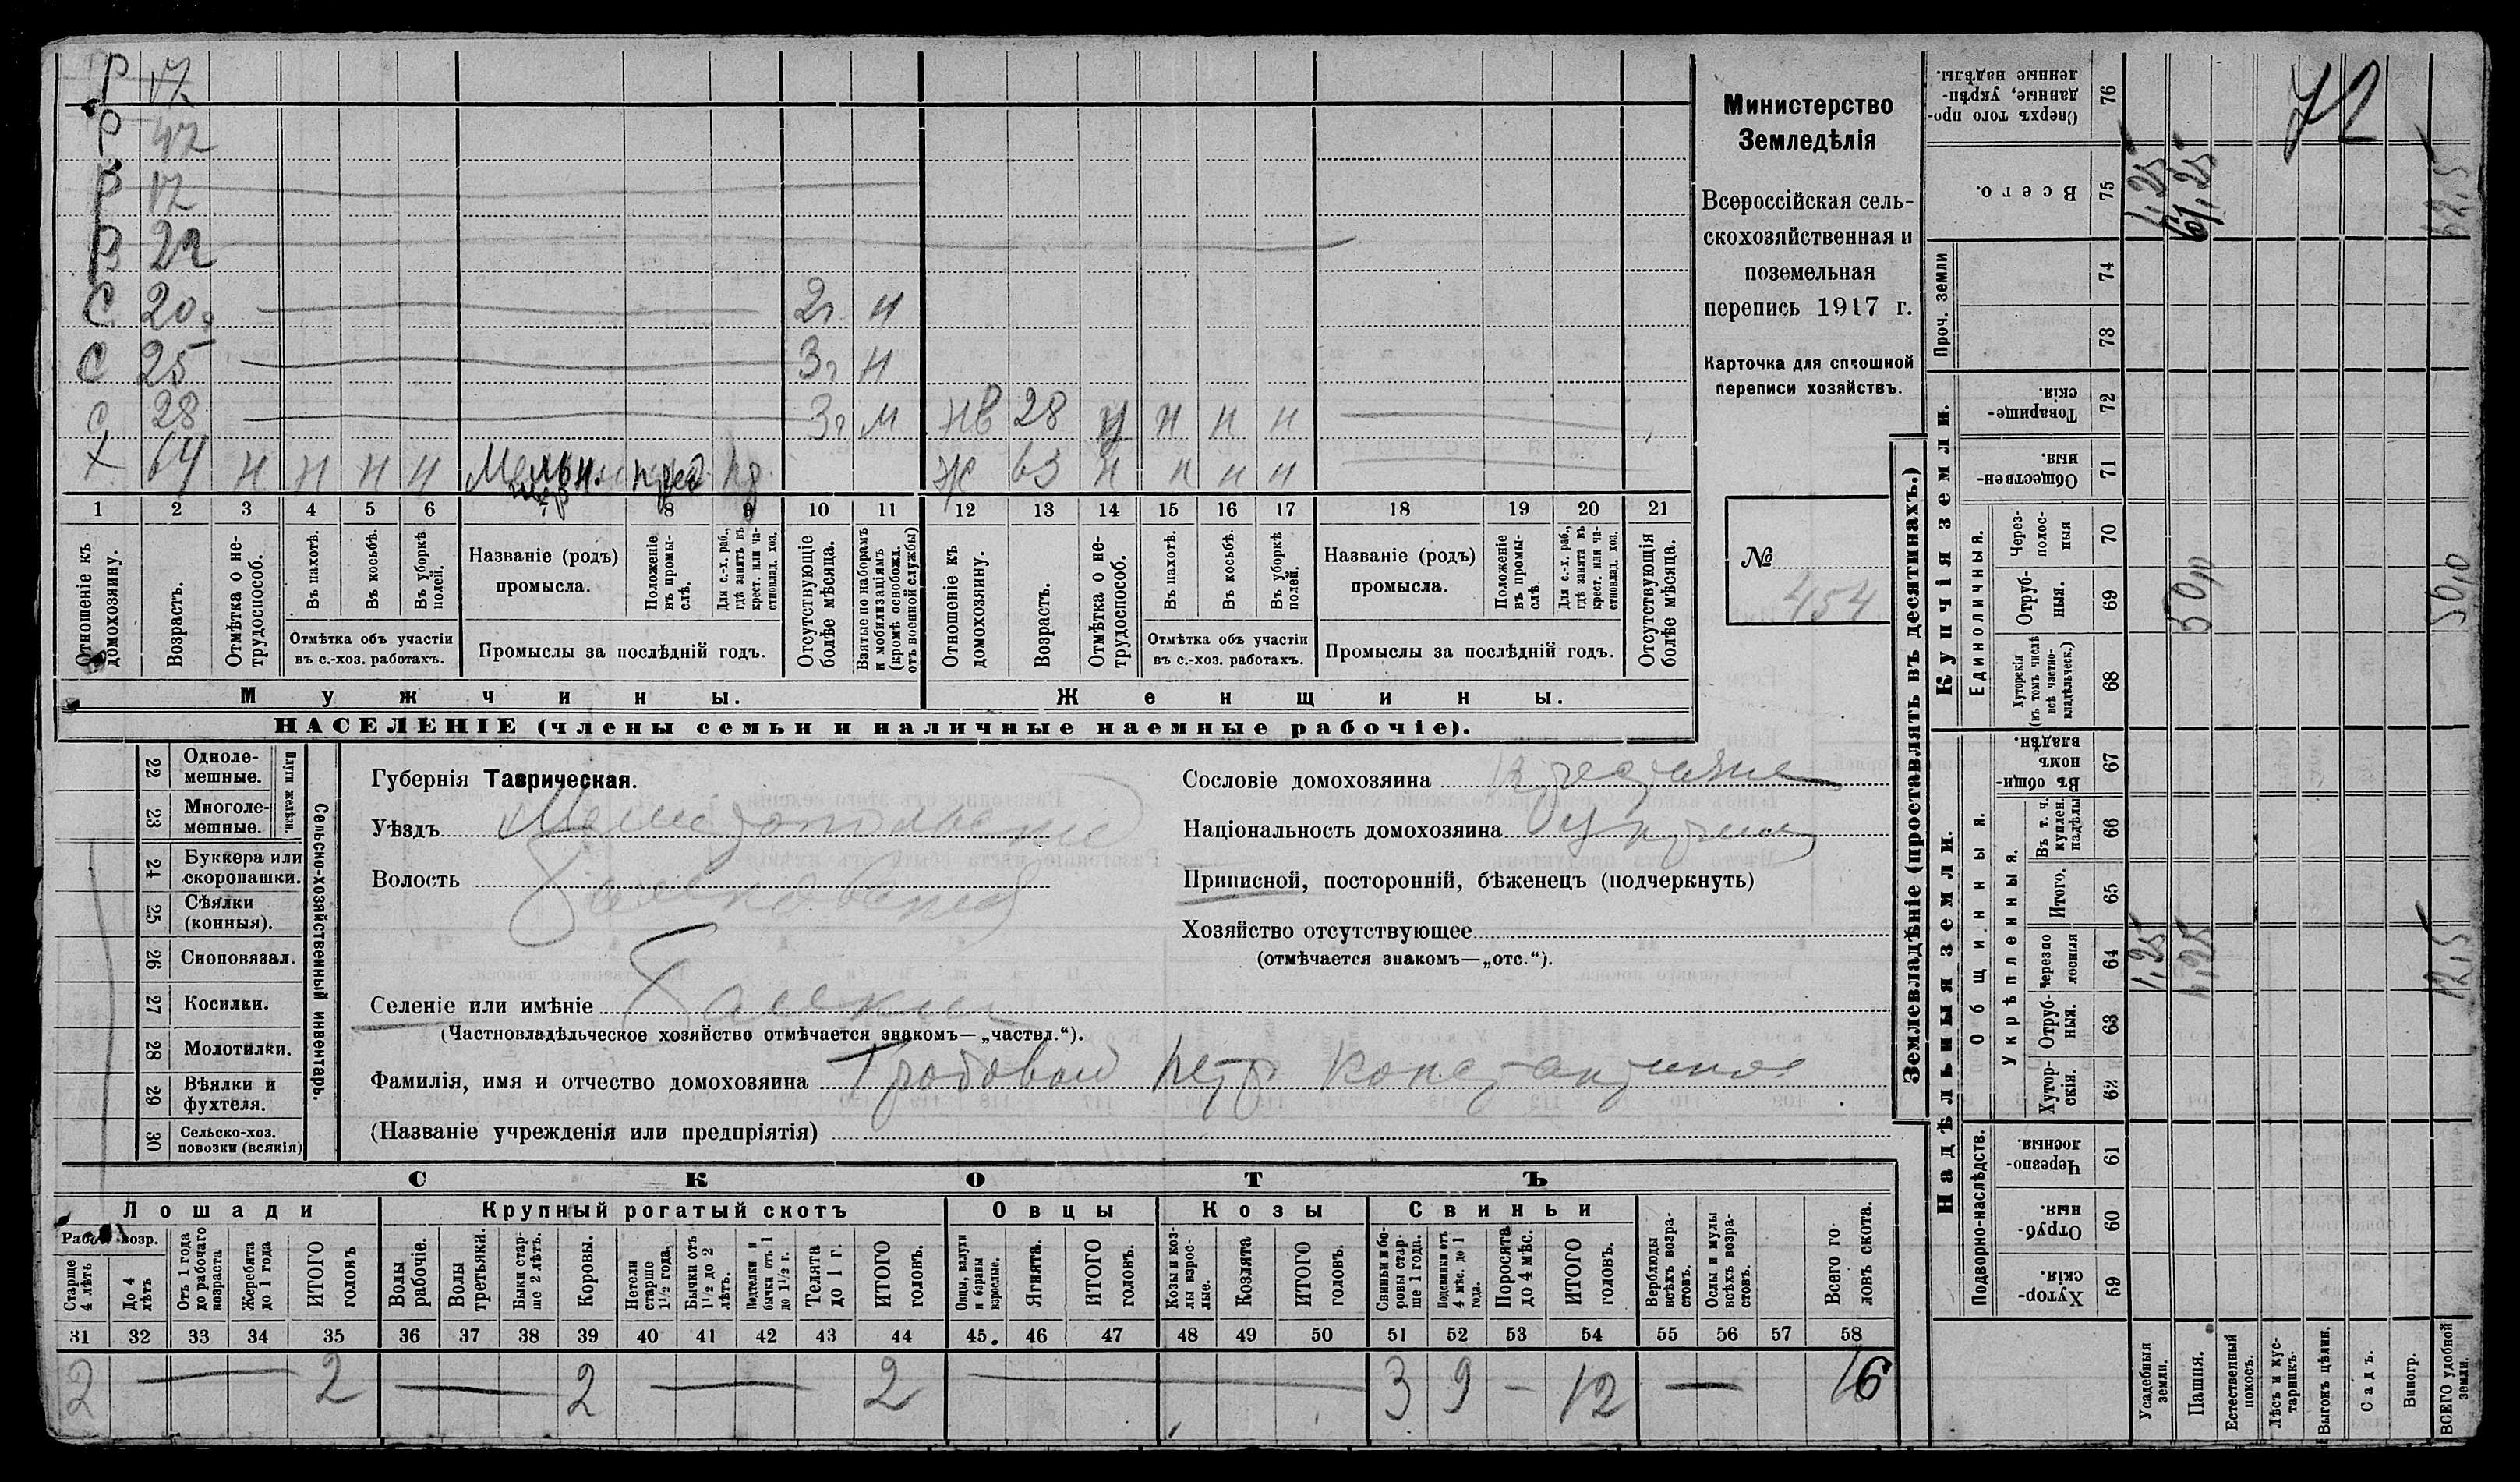 Р 17
Р 47
Р 17
Р 22
С 20 2г. н
С 25 3г н
С 28 3г н нв 28 н н н н
Х 64 н н н н Мельн. Ж 63 н н н н
1 2 3 4 5 6 7 8 9 10 11 12 13 14 15 16 17 18 19 20 21
Отношеніе къ домохозяину.
Возрастъ.
Отмѣтка о не-трудоспособ.
Въ пахотѣ.
Въ косьбѣ.
Въ уборкѣ полей.
Отмѣтка объ участіи въ с.-хоз. работахъ.
Названіе (родъ) промысла.
Положеніе въ промы-слѣ.
Для с.-х. раб., гдѣ занятъ въ крест. или ча-стновлад. хоз.
Промыслы за послѣдній годъ.
Отсутствующіе болѣе мѣсяца.
Взятые по наборамъ и мобилизаціямъ (кромѣ освобожд. отъ военной службы)
Отношеніе къ домохозяину.
Возрастъ.
Отмѣтка о не-трудоспособ.
Въ пахотѣ.
Въ косьбѣ.
Въ уборкѣ полей.
Отмѣтка объ участіи въ с.-хоз. работахъ.
Названіе (родъ) промысла.
Положеніе въ промы-слѣ.
Для с.-х. раб., гдѣ занята въ крест. или ча-стновлад. хоз.
Промыслы за послѣдній годъ.
Отсутствующія болѣе мѣсяца.
Мужчины.
Женщины.
НАСЕЛЕНІЕ (члены семьи и наличные наемные рабочіе).
Министерство
Земледѣлія
Всероссійская сель-
скохозяйственная и
поземельная
перепись 1917 г.
Карточка для сплошной
переписи хозяйствъ.
№ 454
Сельско-хозяйственный инвентарь.
Плуги желѣзн.
22 Одноле-мешные.
23 Многоле-мешные.
24 Буккера или скоропашки.
25 Сѣялки (конныя).
26 Сноповязал.
27 Косилки.
28 Молотилки.
29 Вѣялки и фухтеля.
30 Сельско-хоз. повозки (всякія)
Губернія Таврическая.
Уѣздъ Мелитопольский
Волость
Селеніе или имѣніе
(Частновладѣльческое хозяйство отмѣчается знакомъ—„частвл.“).
Фамилія, имя и отчество домохозяина Гробовой Петр Константинов
(Названіе учрежденія или предпріятія)
Сословіе домохозяина
Національность домохозяина
Приписной, посторонній, бѣженецъ (подчеркнуть)
Хозяйство отсутствующее
(отмѣчается знакомъ—„отс.“).
СКОТЪ
Лошади
Крупный рогатый скотъ
Овцы
Козы
Свиньи
Рабоч. возр.
Старше 4 лѣтъ
До 4 лѣтъ
Отъ 1 года до рабочаго возраста
Жеребята до 1 года
ИТОГО головъ
Волы рабочіе.
Волы третьяки.
Быки стар-ше 2 лѣтъ.
Коровы.
Нетели старше 1 1/2 года.
Бычки отъ 1 1/2 до 2 лѣтъ.
Подтелки и бычки отъ 1 до 1 1/2 г.
Телята до 1 г.
ИТОГО головъ.
Овцы, валухи и бараны взрослые.
Ягнята.
ИТОГО головъ.
Козы и коз-лы взрос-лые.
Козлята
ИТОГО головъ.
Свиньи и бо-ровы стар-ше 1 года.
Подсвинки отъ 4 мѣс. до 1 года.
Поросята до 4 мѣс.
ИТОГО головъ.
Верблюды всѣхъ возра-стовъ.
Ослы и мулы всѣхъ возра-стовъ.
Всего го-ловъ скота.
31 32 33 34 35 36 37 38 39 40 41 42 43 44 45. 46 47 48 49 50 51 52 53 54 55 56 57 58
2 — 2 — 2 — 2 — 3 9 – 12 — 16
Землевладѣніе (проставлять въ десятинахъ.)
Надѣльныя земли.
Купчія земли.
Проч. земли
Подворно-наслѣдств.
Общинныя.
Укрѣпленныя.
Единоличныя.
59 Хутор-скія.
60 Отруб-ныя.
61 Черезпо-лосныя.
62 Хутор-скія.
63 Отруб-ныя.
64 Черезпо лосныя 1,25 12,5
65 Итого.
66 Въ т. ч. куплен. надѣлы
67 Въ общи-номъ владѣн.
68 Хуторскія (въ томъ числѣ всѣ частно-владѣльческ.)
69 Отруб-ныя. 50,0 50,0
70 Через-полос-ныя
71 Обществен-ныя.
72 Товарище-скія.
73
74
75 Всего. 1,25 61,25 62,5
76 Сверхъ того про-данные, укрѣп-ленные надѣлы.
72
Усадебныя земли.
Пашня.
Естественный покосъ.
Лѣсъ и кус-тарникъ.
Выгонъ цѣлин.
Садъ.
Виногр.
ВСЕГО удобной земли.